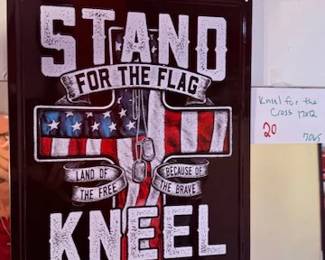 STAND
FOR THE FLAG
LAND OF
THE FREE
BECAUSE OF
THE BRAVE
KNEEL
Kneel for the
Cross 17x12
20
7065